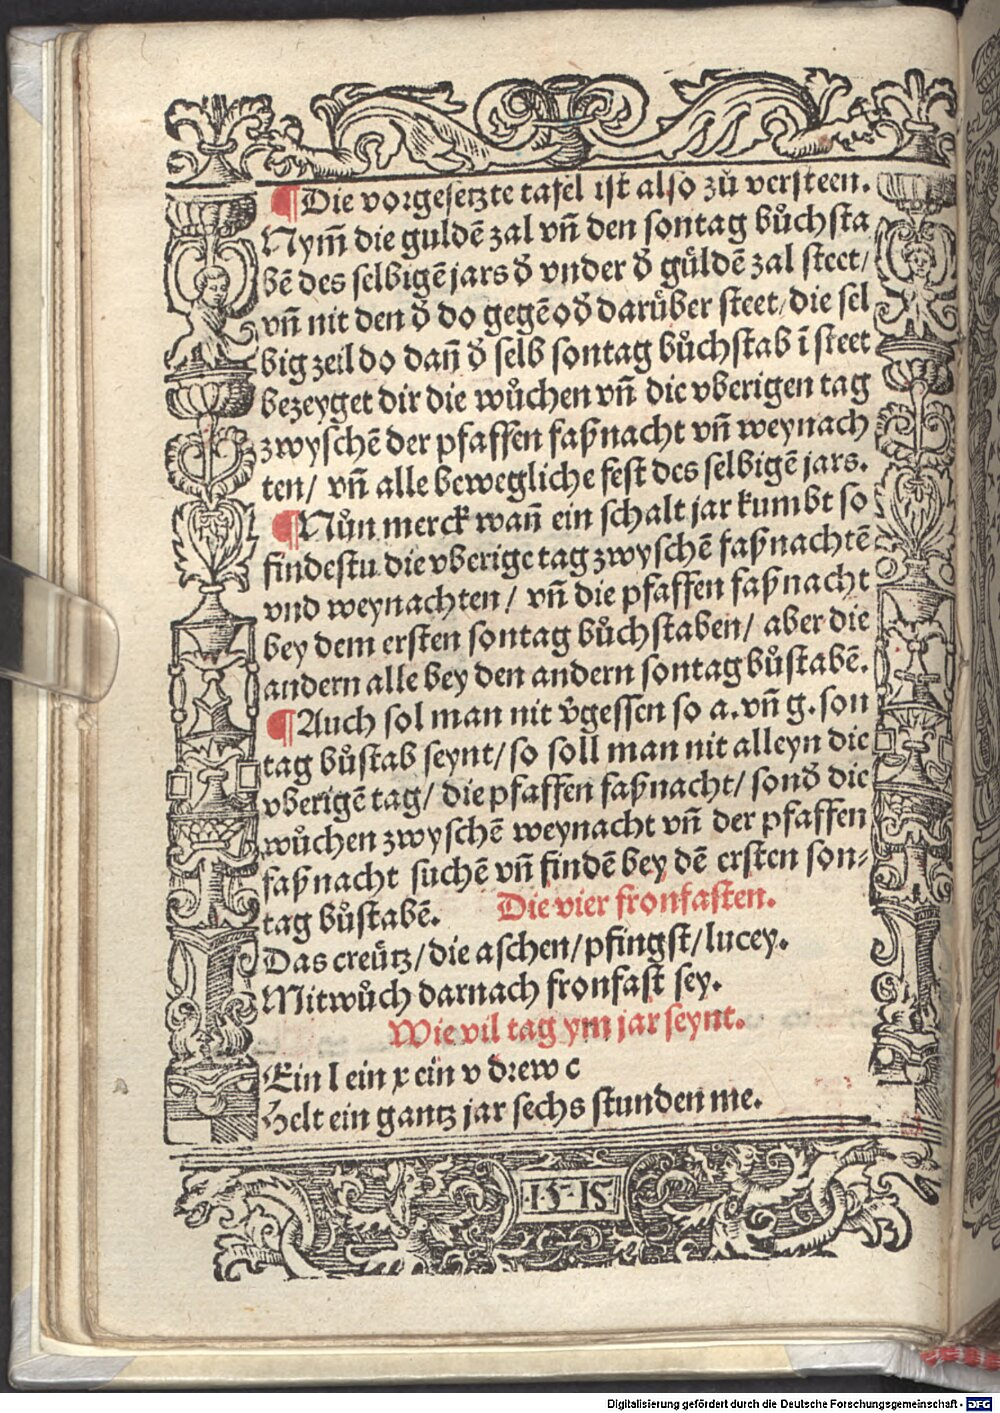 ¶Die vorgesetzte tafel ist also zů versteen.
Nym̃ die guldē zal vn̄ den sontag bůchsta
bē des selbigē jars d̄ vnder d̄ gůldē zal steet/
vn̄ nit den d̄ do gegē od̄ darůber steet/die sel
big zeil do dan̄ d̄ selb sontag bůchstab ī steet
bezeyget dir die wůchen vn̄ die vberigen tag
zwyschē der pfaffen faßnacht vn̄ weynach
ten/ vn̄ alle bewegliche fest des selbigē jars.
¶Nůn merck wan̄ ein schalt jar kumbt so
findestu die vberige tag zwyschē faßnachtē
vnd weynachten/ vn̄ die pfaffen faßnacht
bey dem ersten sontag bůchstaben/ aber die
andern alle bey den andern sontag bůstabē.
¶Auch sol man nit v̄gessen so a.vn̄ g.son
tag bůstab seynt/so soll man nit alleyn die
vberigē tag/ die pfaffen faßnacht/ sond̄ die
wůchen zwyschē weynacht vn̄ der pfaffen
faßnacht suchē vn̄ findē bey dē ersten son⸗
tag bůstabē. Die vier fronfasten.
Das creůtz/die aschen/pfingst/lucey.
Mitwůch darnach fronfast sey.
Wie vil tag ym jar seynt.
Ein l ein x ein v drew c
Helt ein gantz jar sechs stunden me.
·15·15·
Digitalisierung gefördert durch die Deutsche Forschungsgemeinschaft - DFG